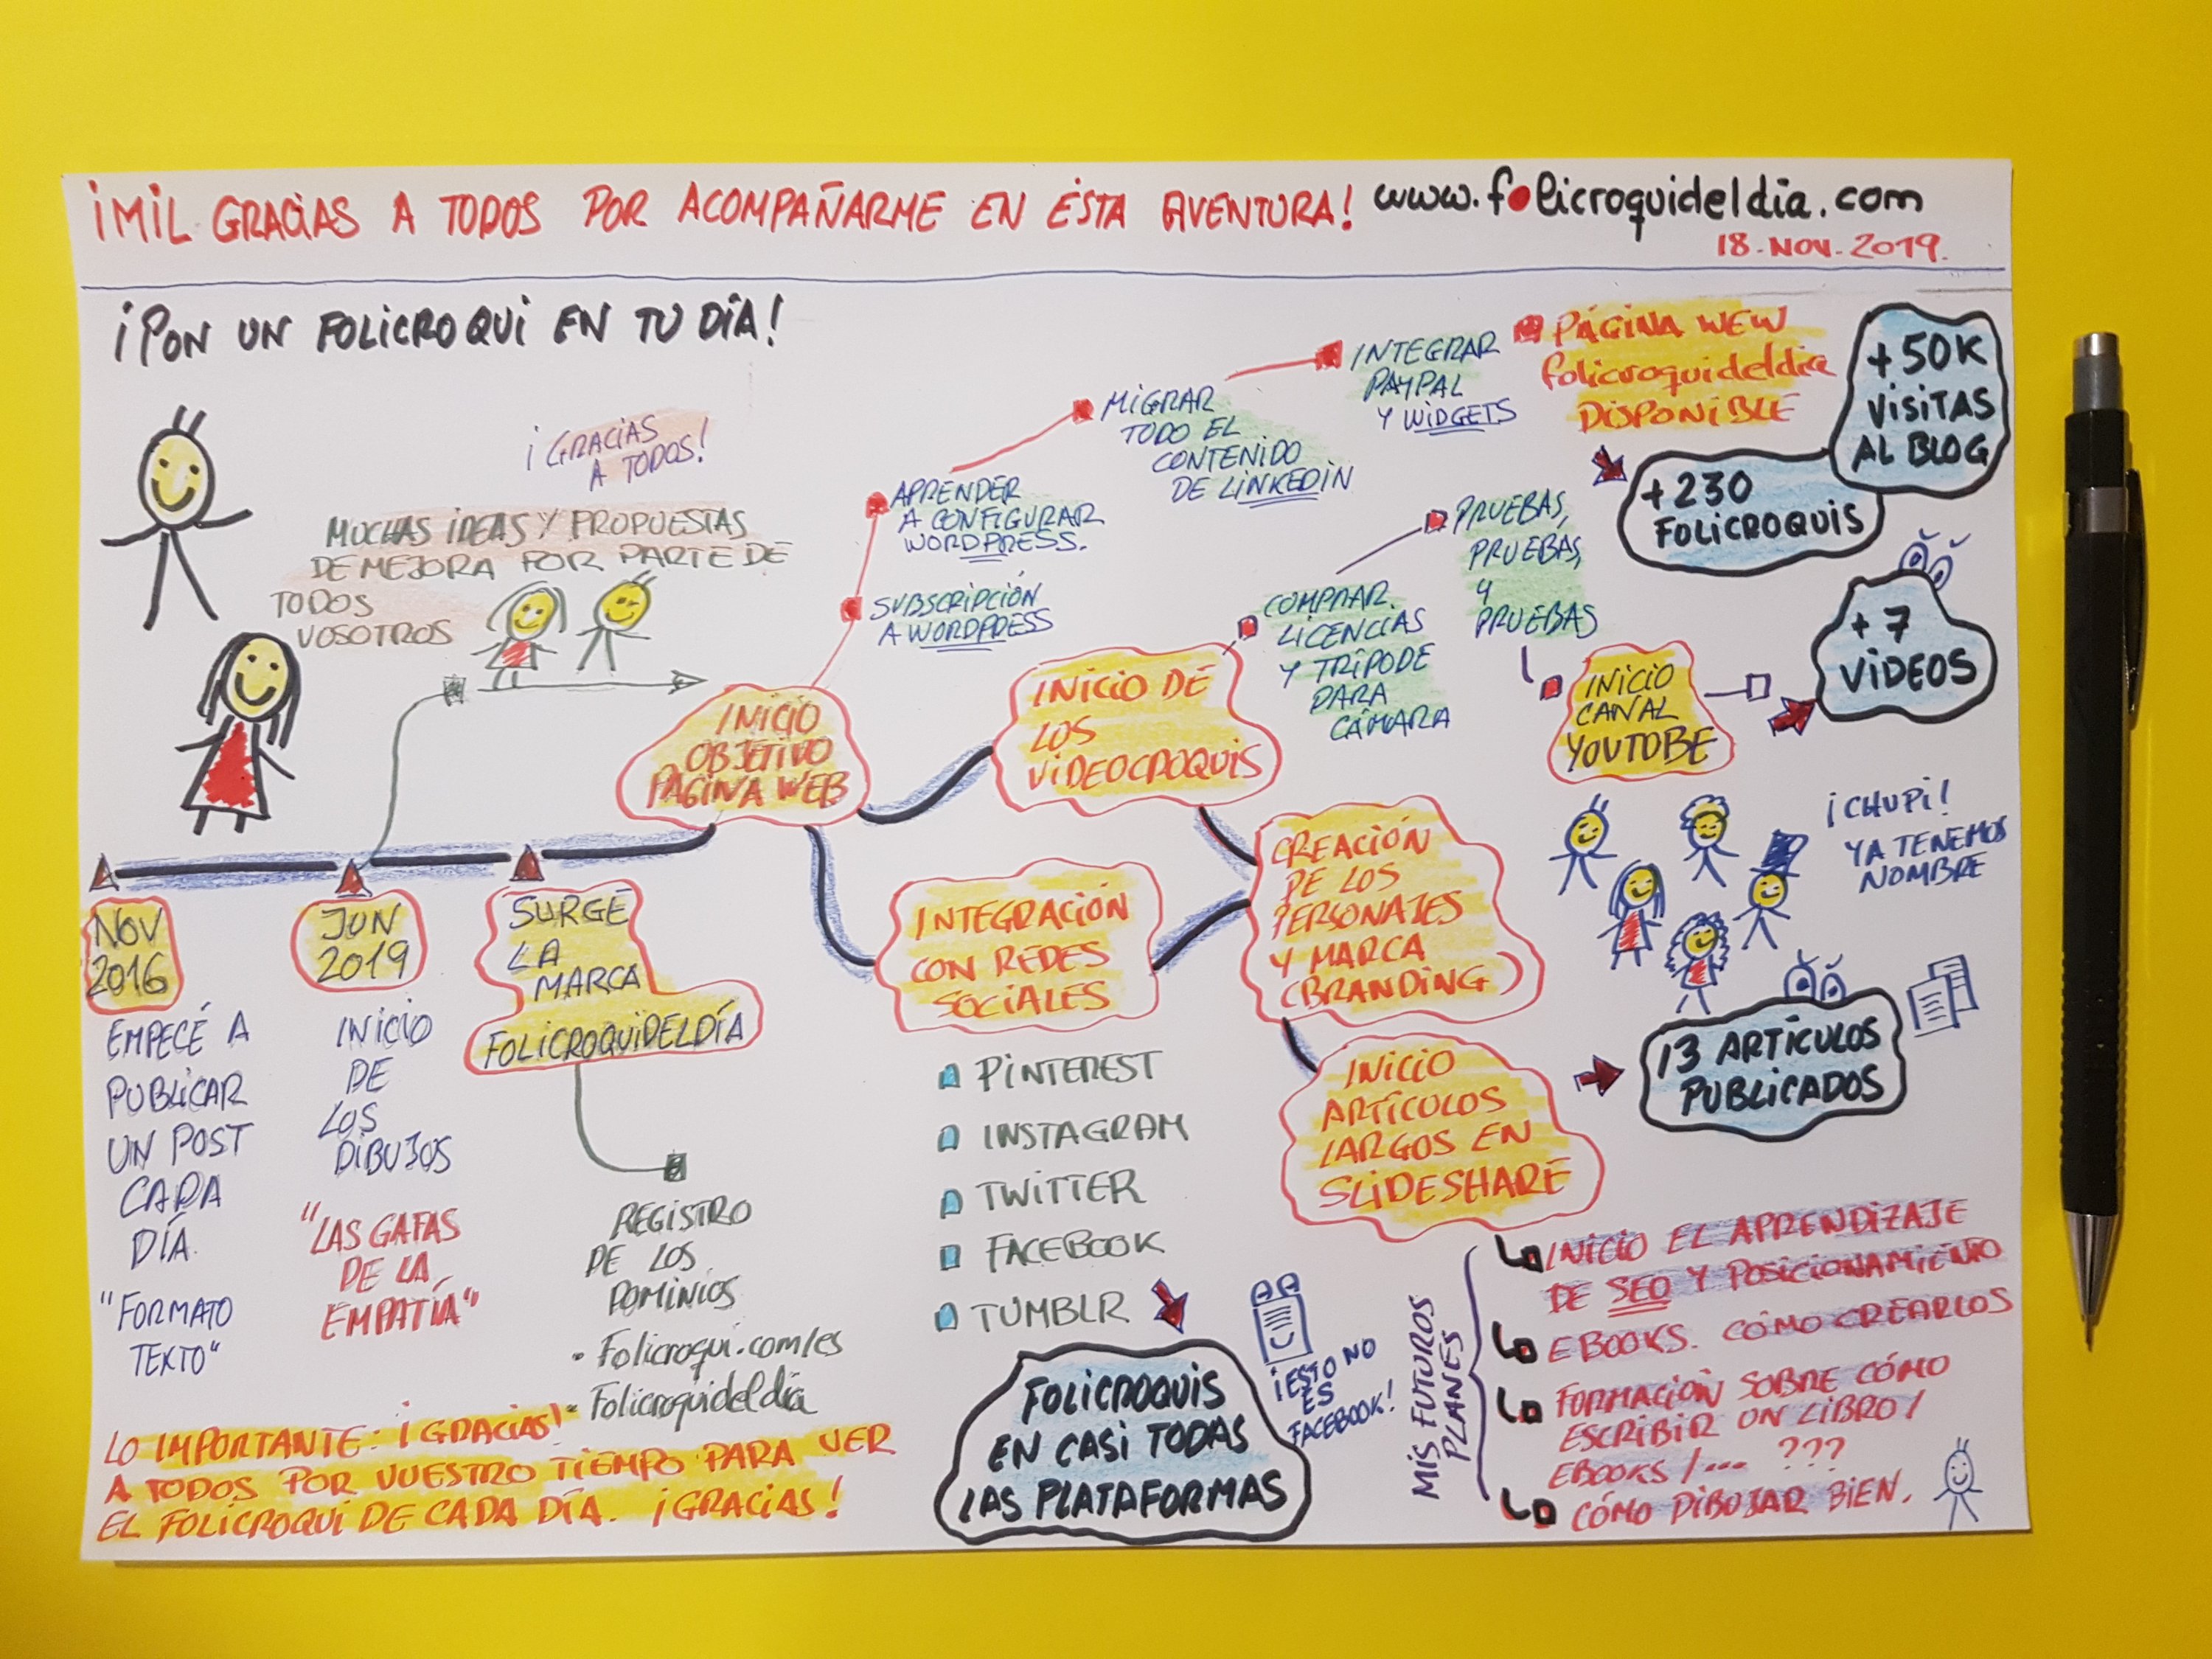 ¡MIL GRACIAS A TODOS POR ACOMPAÑARME EN ÉSTA AVENTURA! www.folicroquideldia.com
18.NOV.2019.
¡PON UN FOLICROQUI EN TU DÍA!
¡GRACIAS
A TODOS!
MUCHAS IDEAS Y PROPUESTAS
DE MEJORA POR PARTE DE
TODOS
VOSOTROS
INICIO
OBJETIVO
PÁGINA WEB
SUBSCRIPCIÓN
A WORDPRESS
APRENDER
A CONFIGURAR
WORDPRESS.
MIGRAR
TODO EL
CONTENIDO
DE LINKEDIN
INTEGRAR
PAYPAL
Y WIDGETS
PÁGINA WEW
folicroquideldia
DISPONIBLE
+50K
VISITAS
AL BLOG
+230
FOLICROQUIS
INICIO DE
LOS
VIDEOCROQUIS
COMPRAR
LICENCIAS
Y TRÍPODE
PARA
CÁMARA
PRUEBAS,
PRUEBAS,
Y
PRUEBAS
INICIO
CANAL
YOUTOBE
+7
VIDEOS
NOV
2016
EMPECÉ A
PUBLICAR
UN POST
CADA
DÍA.
"FORMATO
TEXTO"
JUN
2019
INICIO
DE
LOS
DIBUJOS
"LAS GAFAS
DE LA
EMPATÍA"
SURGE
LA
MARCA
FOLICROQUIDELDÍA
REGISTRO
DE LOS
DOMINIOS
• Folicroqui.com/es
• Folicroquideldía
INTEGRACIÓN
CON REDES
SOCIALES
PINTEREST
INSTAGRAM
TWITTER
FACEBOOK
TUMBLR
FOLICROQUIS
EN CASI TODAS
LAS PLATAFORMAS
¡ESTO NO
ES
FACEBOOK!
CREACIÓN
DE LOS
PERSONAJES
Y MARCA
(BRANDING)
¡CHUPI!
YA TENEMOS
NOMBRE
INICIO
ARTÍCULOS
LARGOS EN
SLIDESHARE
13 ARTÍCULOS
PUBLICADOS
MIS FUTUROS
PLANES
INICIO EL APRENDIZAJE
DE SEO Y POSICIONAMIENTO
EBOOKS. CÓMO CREARLOS
FORMACIÓN SOBRE CÓMO
ESCRIBIR UN LIBRO/
EBOOKS/... ???
CÓMO DIBUJAR BIEN.
LO IMPORTANTE: ¡GRACIAS!
A TODOS POR VUESTRO TIEMPO PARA VER
EL FOLICROQUI DE CADA DÍA. ¡GRACIAS!